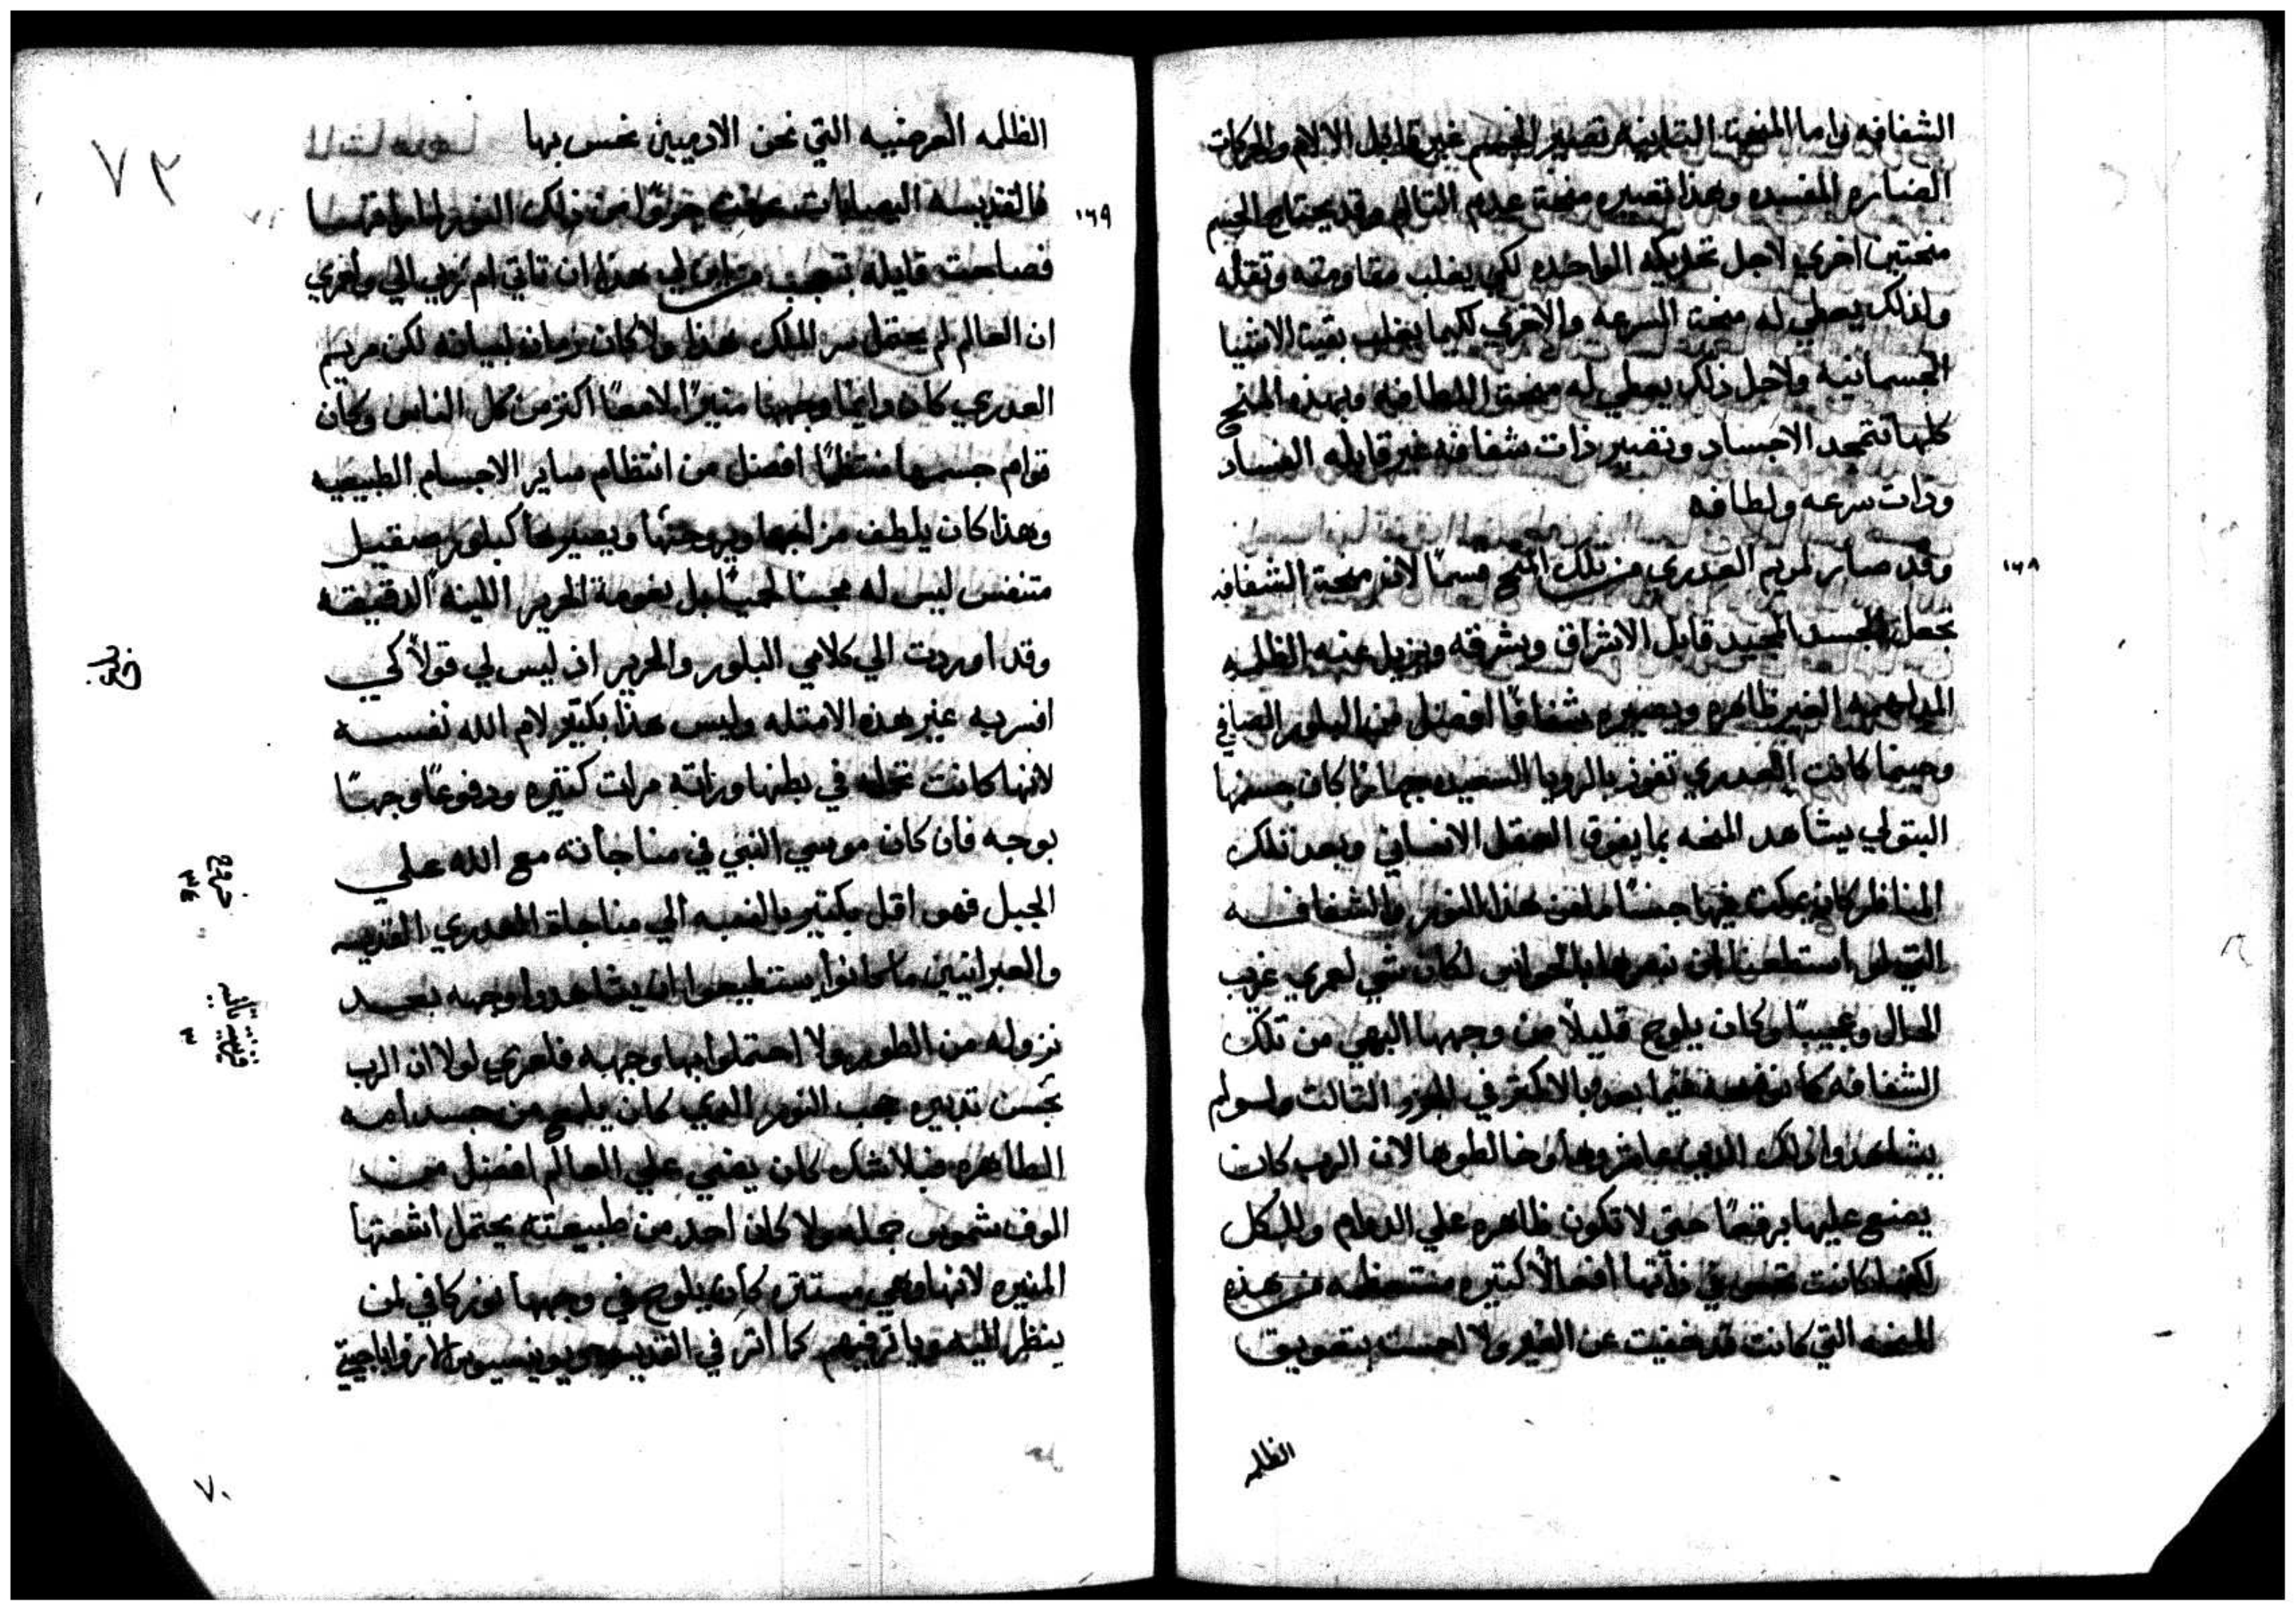 الشفافه واما المنحة التانيه تصير الجسم غير قابل الالام والحركات
الضاره المفسده وهذا تصيره منحة عدم التالم وقد يحتاج الجسم
منحتين اخري لاجل تحريكه الواحده لكي يغلب مقاومته وتقله
ولذلك يعطي له منحة السرعه والاخري لكيما يغلب بقية الاشيا
الجسمانيه ولاجل ذلك يعطي له منحة اللطافه وبهذه المنح
كلها تتمجد الاجساد وتصير ذات شفافه غير قابله الفساد
وذات سرعه ولطافه
١٦٨
وقد صار لمريم العدري من تلك المنح قسمًا لان منحة الشفافه
تجعل الجسد المجيد قابل الاشراق وبشرقه ويزيل عنه الظلمه
المدلهمه الغير ظاهره ويصيره شفافًا افضل من البلور الصافي
وحينما كانت العدري تفوز بالرويا السعيده جهازا كان جسدها
البتولي يشاهد المنحه بما يفوق العقل الانساني وبعد تلك
المناظر كان يمكث فيها جنسًا من هذا النور والشفافه
التي لو استطعنا ان نبصرها بالحواس لكان شي لعمري غريب
الحال وعجيبًا وكان يلوح قليلاً من وجهها البهي من تلك
الشفافه كما نوضحه فيما بعد بالاكتر في الجزو التالت ولو لم
يشاهدوا اوليك الدين عاشروها وخالطوها لان الرب كان
يضع عليها برقعًا حتي لا تكون ظاهره علي الدوام وللكل
لكنها كانت تحس في ذاتها افعالاً كتيره منتحظه من هذه
المنحه التي كانت قد خفيت عن الغير ولا احست بتعويق
الظلمه
٧٢
الظلمه العرضيه التي نحن الادميين نحس بها
١٦٩
فالقديسه اليصابات عرفت جزوًا من ذلك النور لما راتها
فصاحت قايله بتعجب من اين لي هذا ان تاتي ام ربي الي ولعمري
ان العالم لم يحتمل سر الملك هذا ولا كان زمانه لبيانه لكن مريم
العدري كان دايمًا وجهها منيرًا لامعًا اكتر من كل الناس وكان
قوام جسمها منتظمًا افضل من انتظام ساير الاجسام الطبيعيه
وهذا كان يلطف مزاجها ويروحنها ويصيرها كبلور صقيل
متنفس ليس له مجسا لحميًا بل نعومة الحرير اللينه الدقيقه
وقد اوردت الي كلامي البلور والحرير اد ليس لي قولاً كي
افسر به غير هذه الامتله وليس هذا بكتير لام الله نفسه
لانها كانت تحمله في بطنها وراته مرات كتيره ودفوعًا وجهًا
بوجه فان كان موسي النبي في مناجاته مع الله علي
خروج
٣٤
الجبل فهو اقل بكتير بالنسبه الي مناجاة العدري القديسه
والعبرانيين ما كانوا يستطيعوا ان يشاهدوا وجهه بعد
قرنتيه تانيه
٣
نزوله من الطور ولا احتملوا بها وجهه فلعمري لولا ان الرب
بحسن تدبيره حجب النور الدي كان يلمع من جسد امه
الطاهره فبلا شك كان يضي علي العالم افضل من
الوف شموس جمله ولا كان احد من طبيعته يحتمل اشعتها
المنيره لانها وهي مستتره كان يلوح في وجهها نور كافي لمن
ينظر اليه وياتر فيهم كما اتر في القديس ديونيسيوس الاريوباجيتي
٧٠